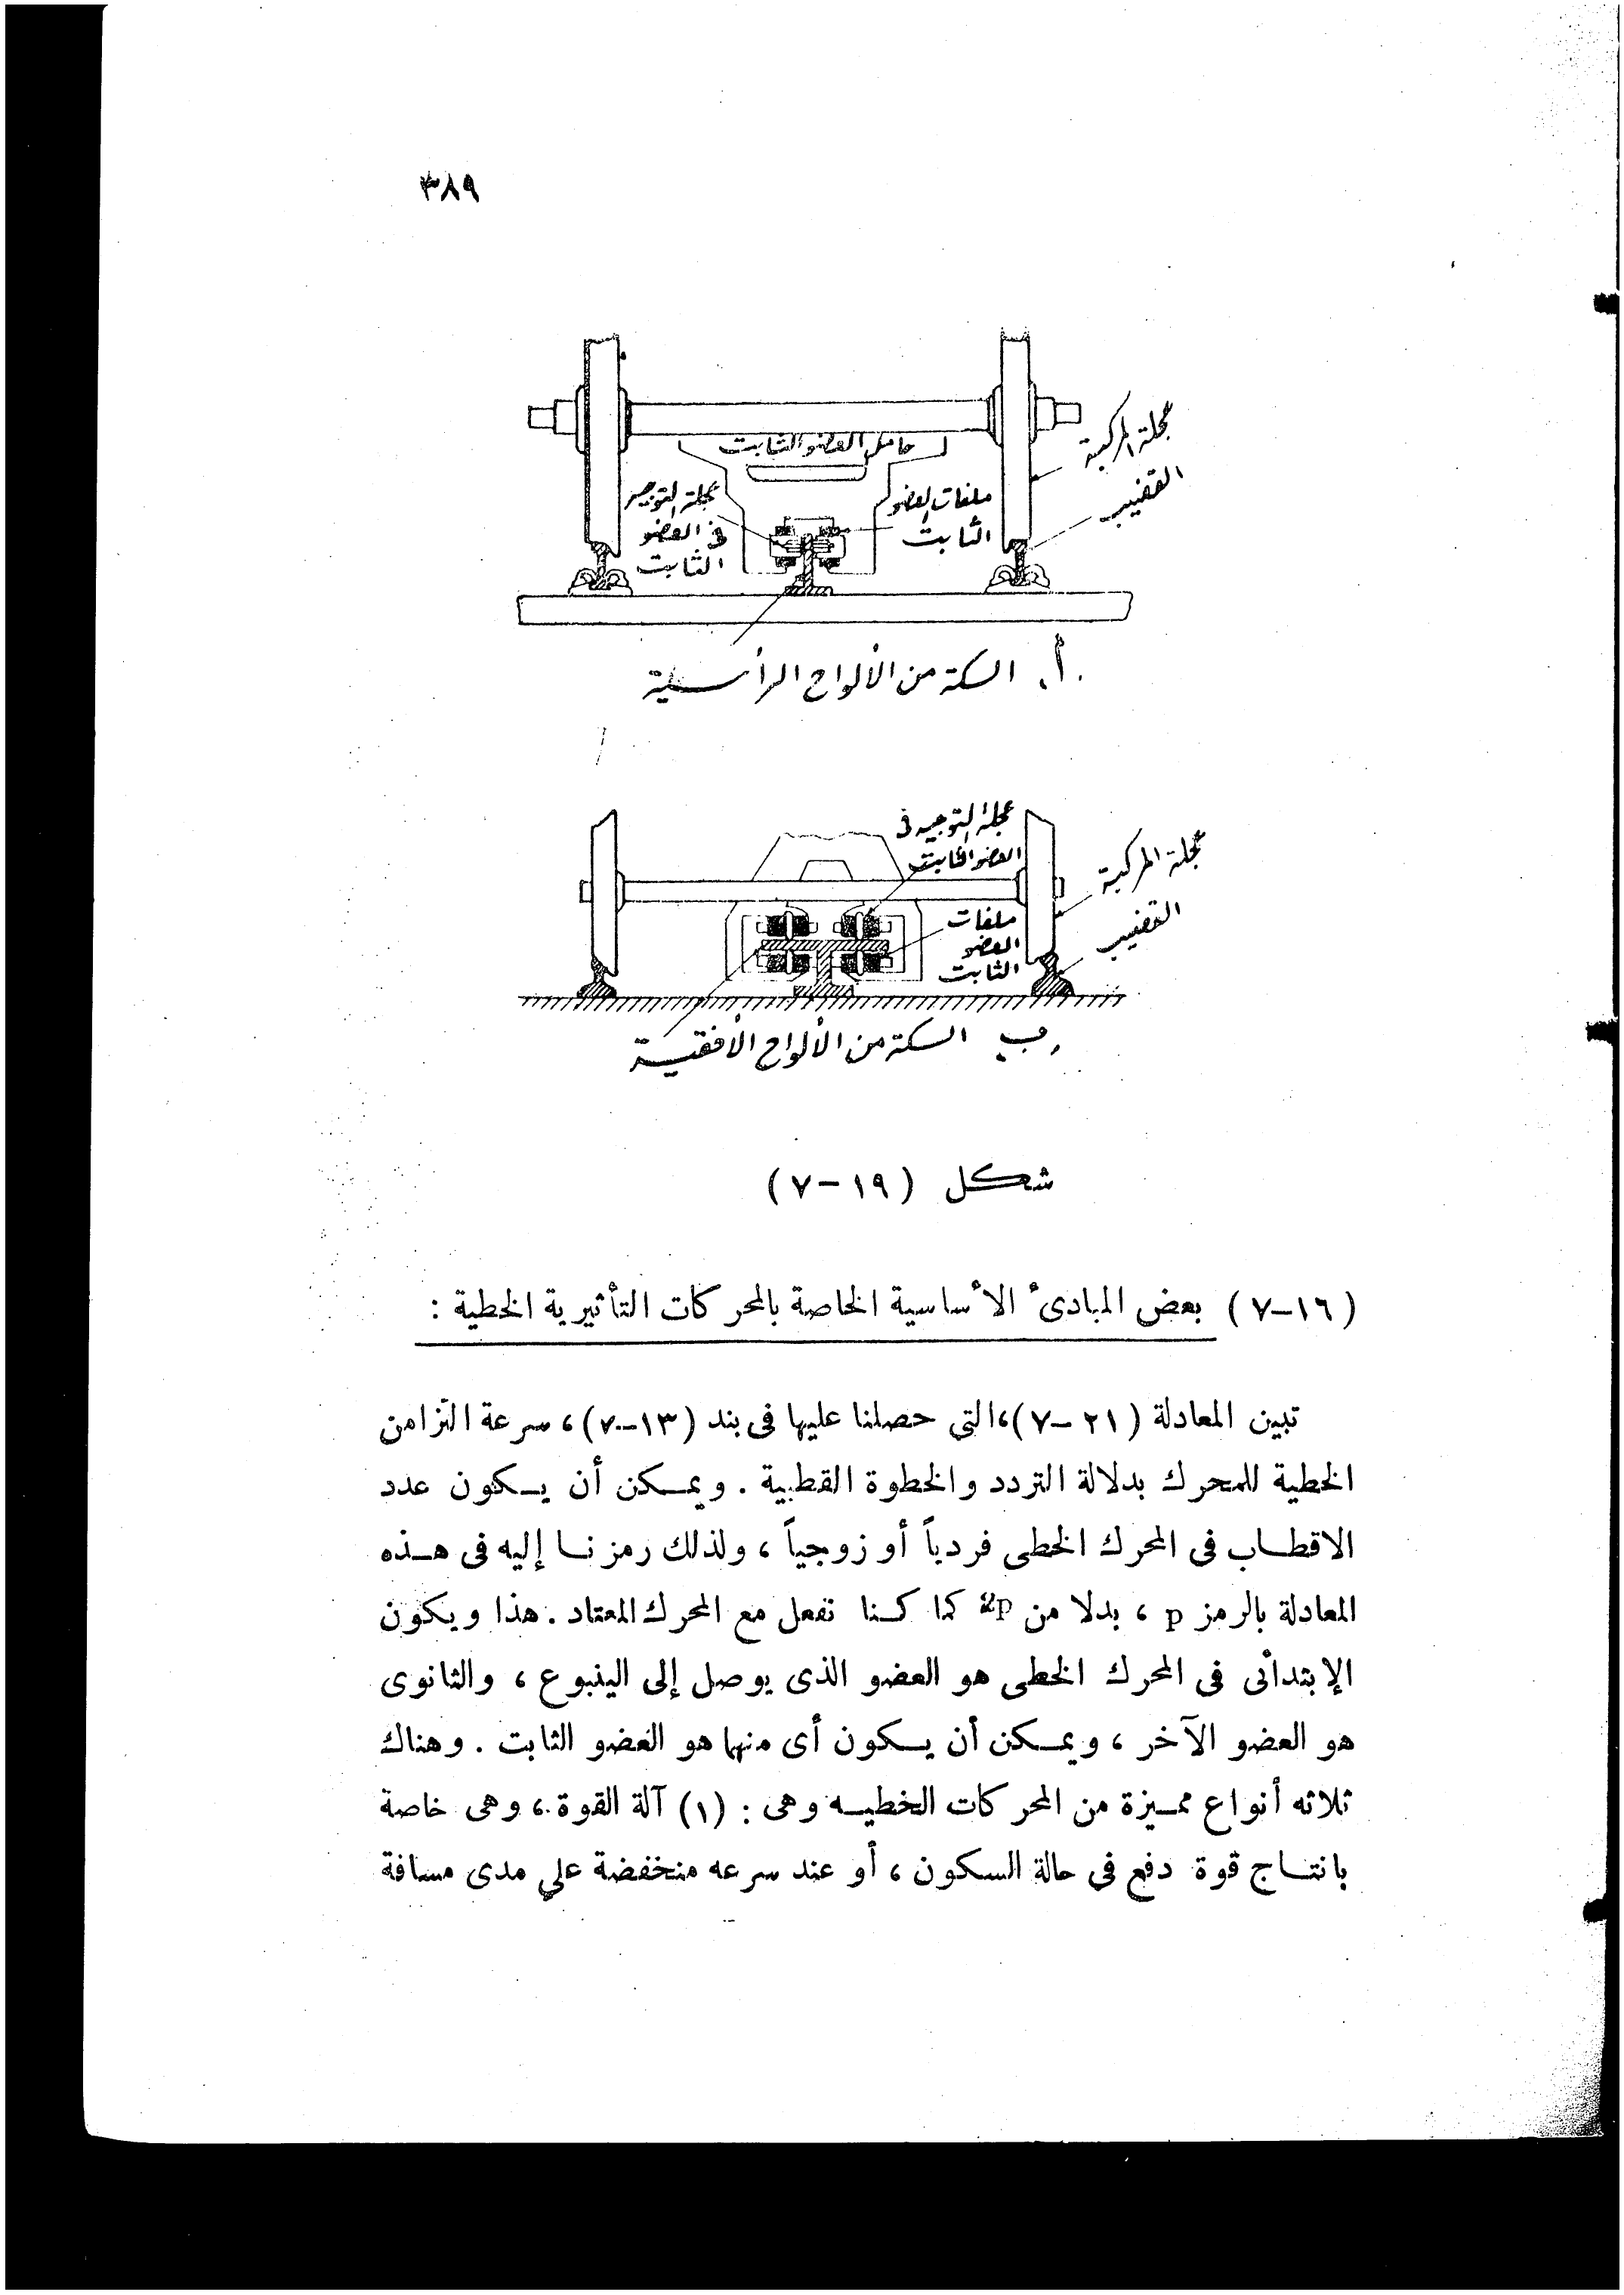 ٣٨٩
حامل العضو الثابت
عجلة المركبة
القضيب
ملفات العضو
الثابت
عجلة التوجيه
فى العضو
الثابت
أ. السكة من الألواح الرأسية
عجلة التوجيه فى
العضو الثابت
عجلة المركبة
القضيب
ملفات
العضو
الثابت
ب السكة من الألواح الأفقية
شكل (١٩–٧)
(١٦–٧) بعض المبادئ الأساسية الخاصة بالمحركات التأثيرية الخطية :
تبين المعادلة (٢١–٧)، التي حصلنا عليها فى بند (١٣–٧)، سرعة التزامن
الخطية للمحرك بدلالة التردد والخطوة القطبية . ويمكن أن يكون عدد
الاقطاب فى المحرك الخطى فردياً أو زوجياً ، ولذلك رمزنا إليه فى هذه
المعادلة بالرمز p ، بدلا من 2p كما كنا نفعل مع المحرك المعتاد . هذا ويكون
الإبتدائى فى المحرك الخطى هو العضو الذى يوصل إلى الينبوع ، والثانوى
هو العضو الآخر ، ويمكن أن يكون أى منهما هو العضو الثابت . وهناك
ثلاثه أنواع مميزة من المحركات الخطيه وهى : (١) آلة القوة ، وهى خاصة
بانتاج قوة دفع فى حالة السكون ، أو عند سرعه منخفضة علي مدى مسافة